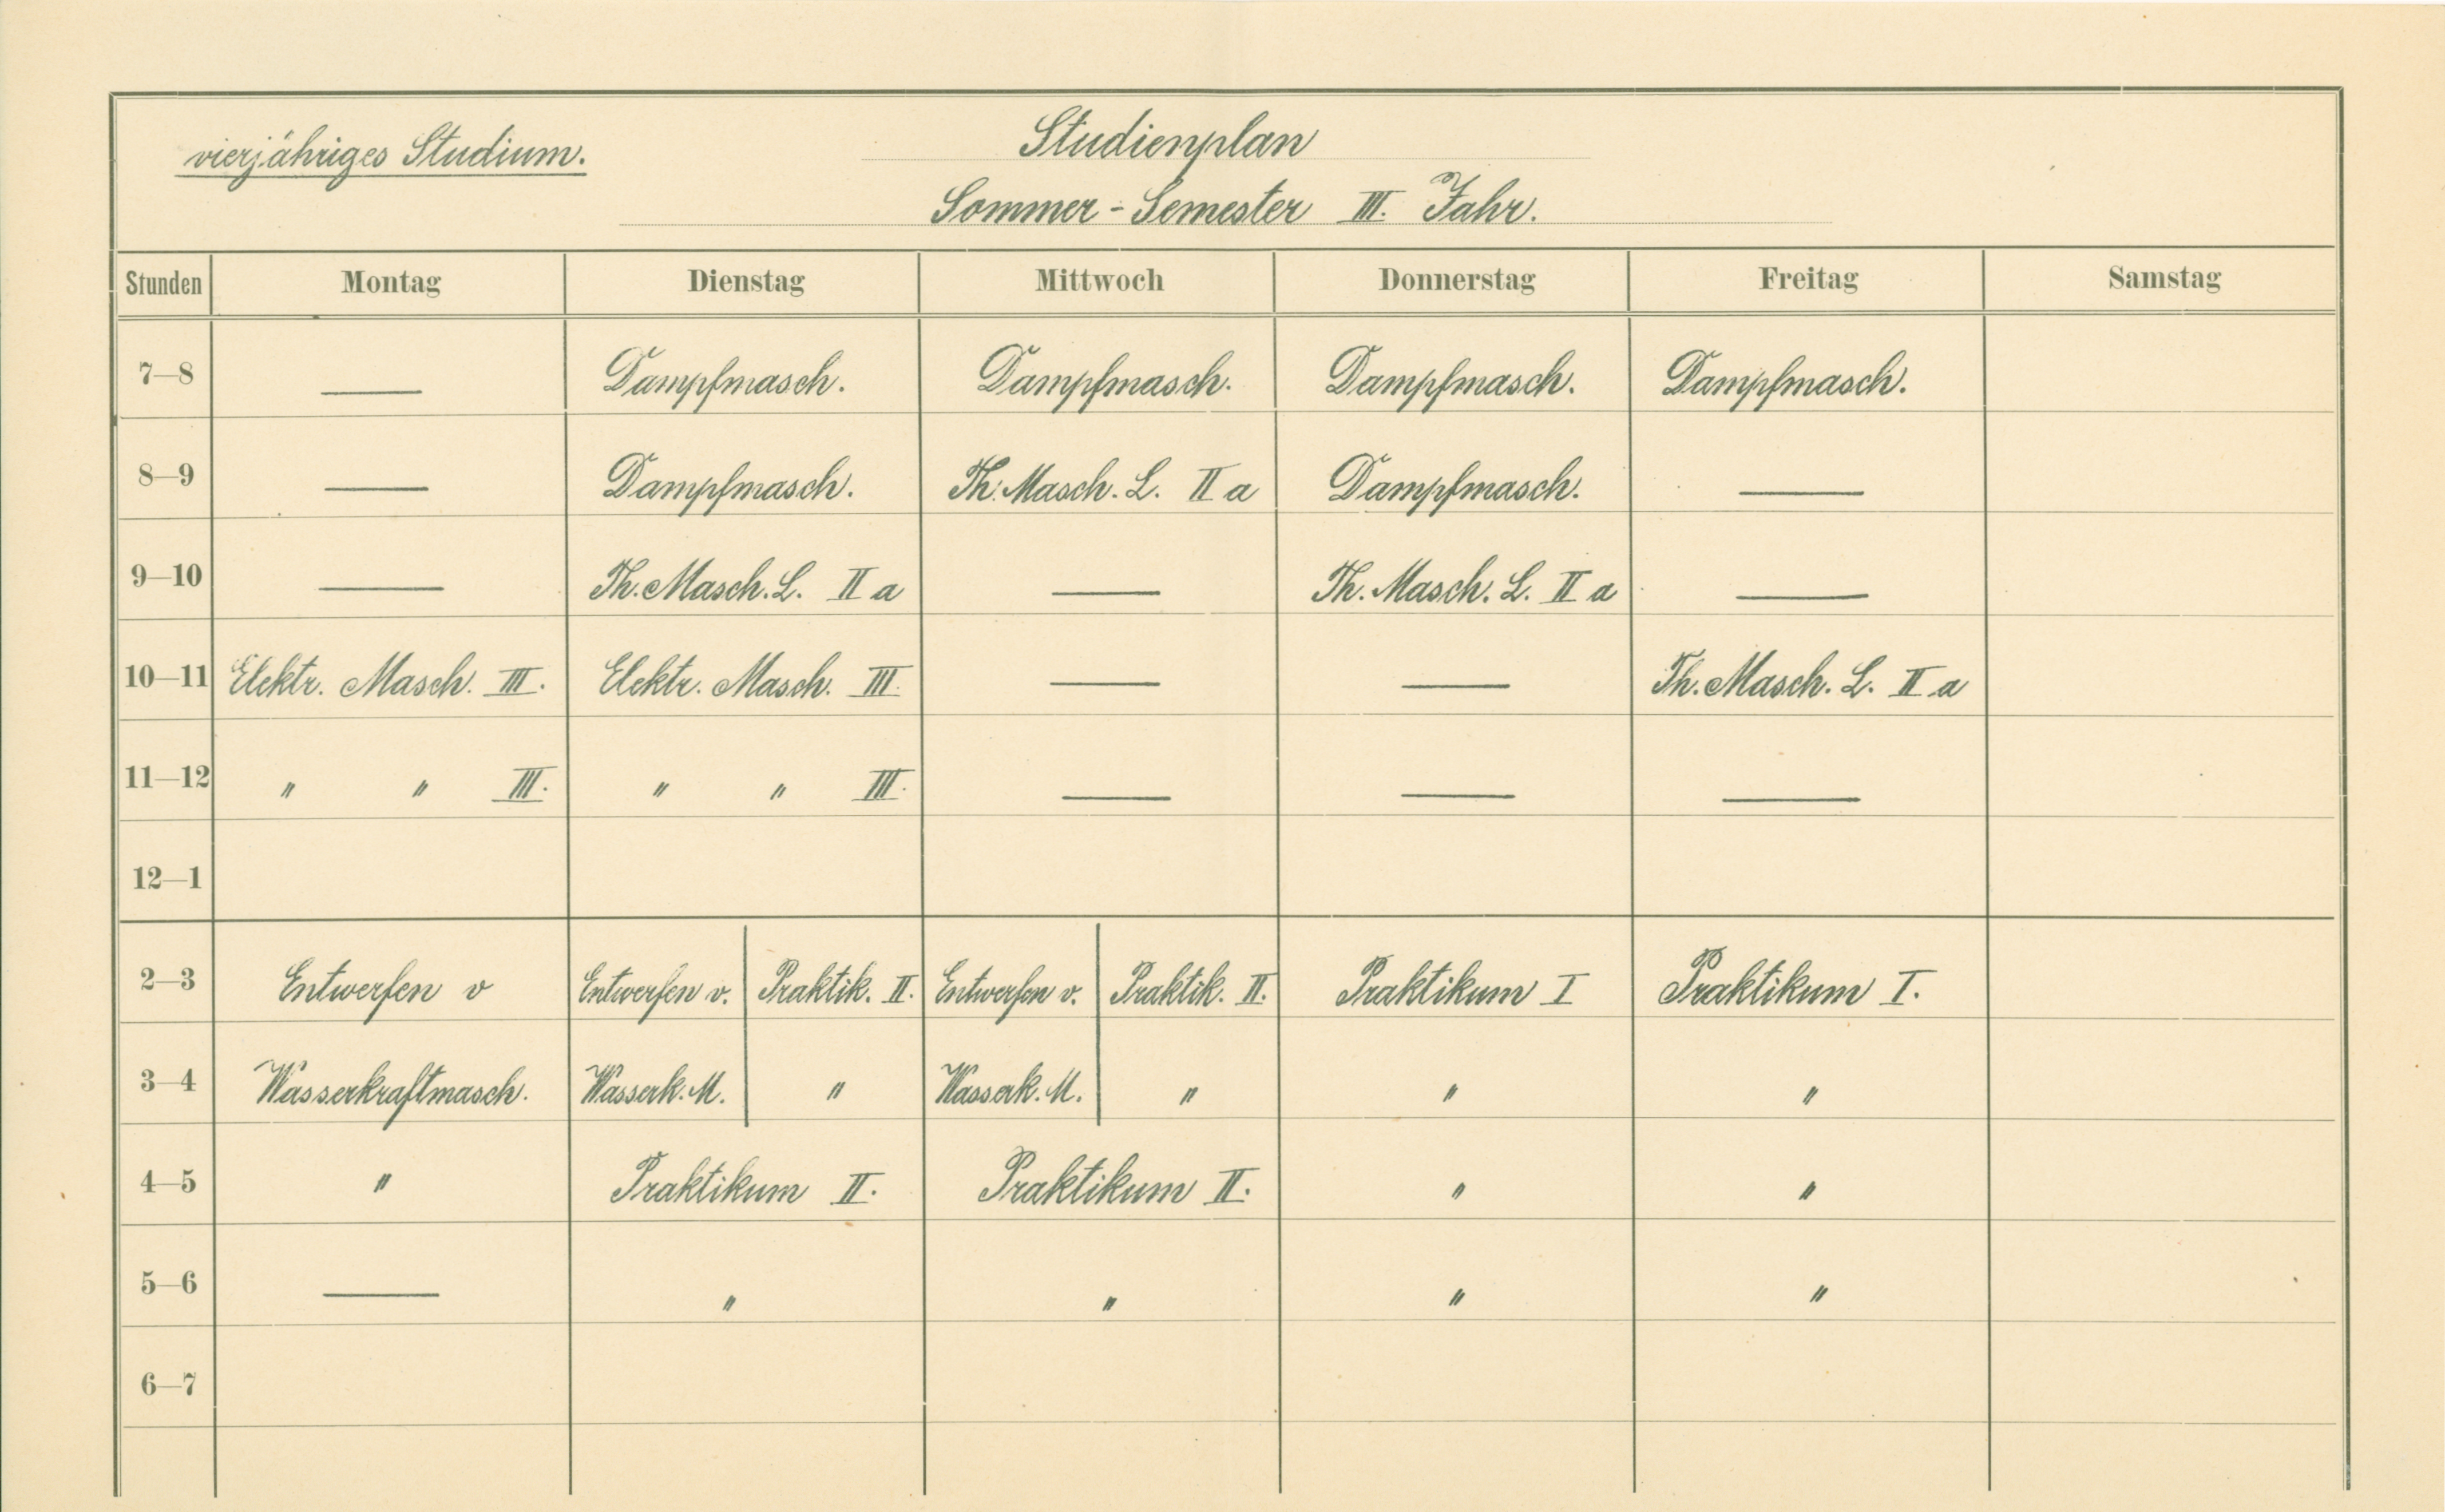 vierjähriges Studium.
Studienplan
Sommer - Semester III. Jahr.
Stunden Montag Dienstag Mittwoch Donnerstag Freitag Samstag
7—8 — Dampfmasch. Dampfmasch. Dampfmasch. Dampfmasch.
8—9 — Dampfmasch. Th. Masch. L. II a Dampfmasch. —
9—10 — Th. Masch. L. II a — Th. Masch. L. II a —
10—11 Elektr. Masch. III. Elektr. Masch. III. — — Th. Masch. L. II a
11—12 " " III. " " III. — — —
12—1
2—3 Entwerfen v Entwerfen v. Praktik. II. Entwerfen v. Praktik. II. Praktikum I Praktikum I.
3—4 Wasserkraftmasch. Wasserk. M. " Wasserk. M. " " "
4—5 " Praktikum II. Praktikum II. " "
5—6 — " " " "
6—7